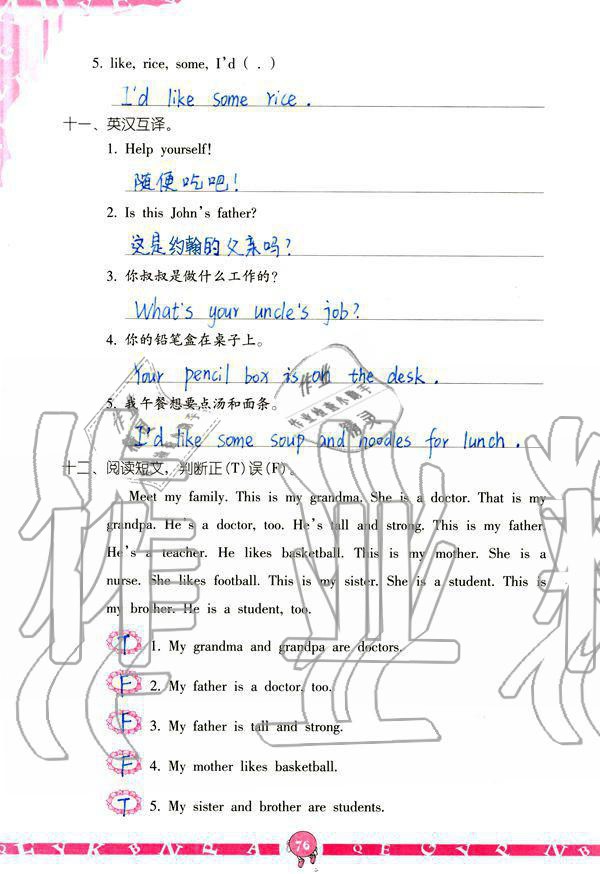 5. like, rice, some, I'd ( . )
I'd like some rice.
十一、英汉互译。
1. Help yourself!
随便吃吧!
2. Is this John's father?
这是约翰的父亲吗?
3. 你叔叔是做什么工作的?
What's your uncle's job?
4. 你的铅笔盒在桌子上。
Your pencil box is on the desk.
5. 我午餐想要点汤和面条。
I'd like some soup and noodles for lunch.
十二、阅读短文,判断正(T)误(F)。
Meet my family. This is my grandma. She is a doctor. That is my
grandpa. He's a doctor, too. He's tall and strong. This is my father.
He's a teacher. He likes basketball. This is my mother. She is a
nurse. She likes football. This is my sister. She is a student. This is
my brother. He is a student, too.
T 1. My grandma and grandpa are doctors.
F 2. My father is a doctor, too.
F 3. My father is tall and strong.
F 4. My mother likes basketball.
T 5. My sister and brother are students.
76